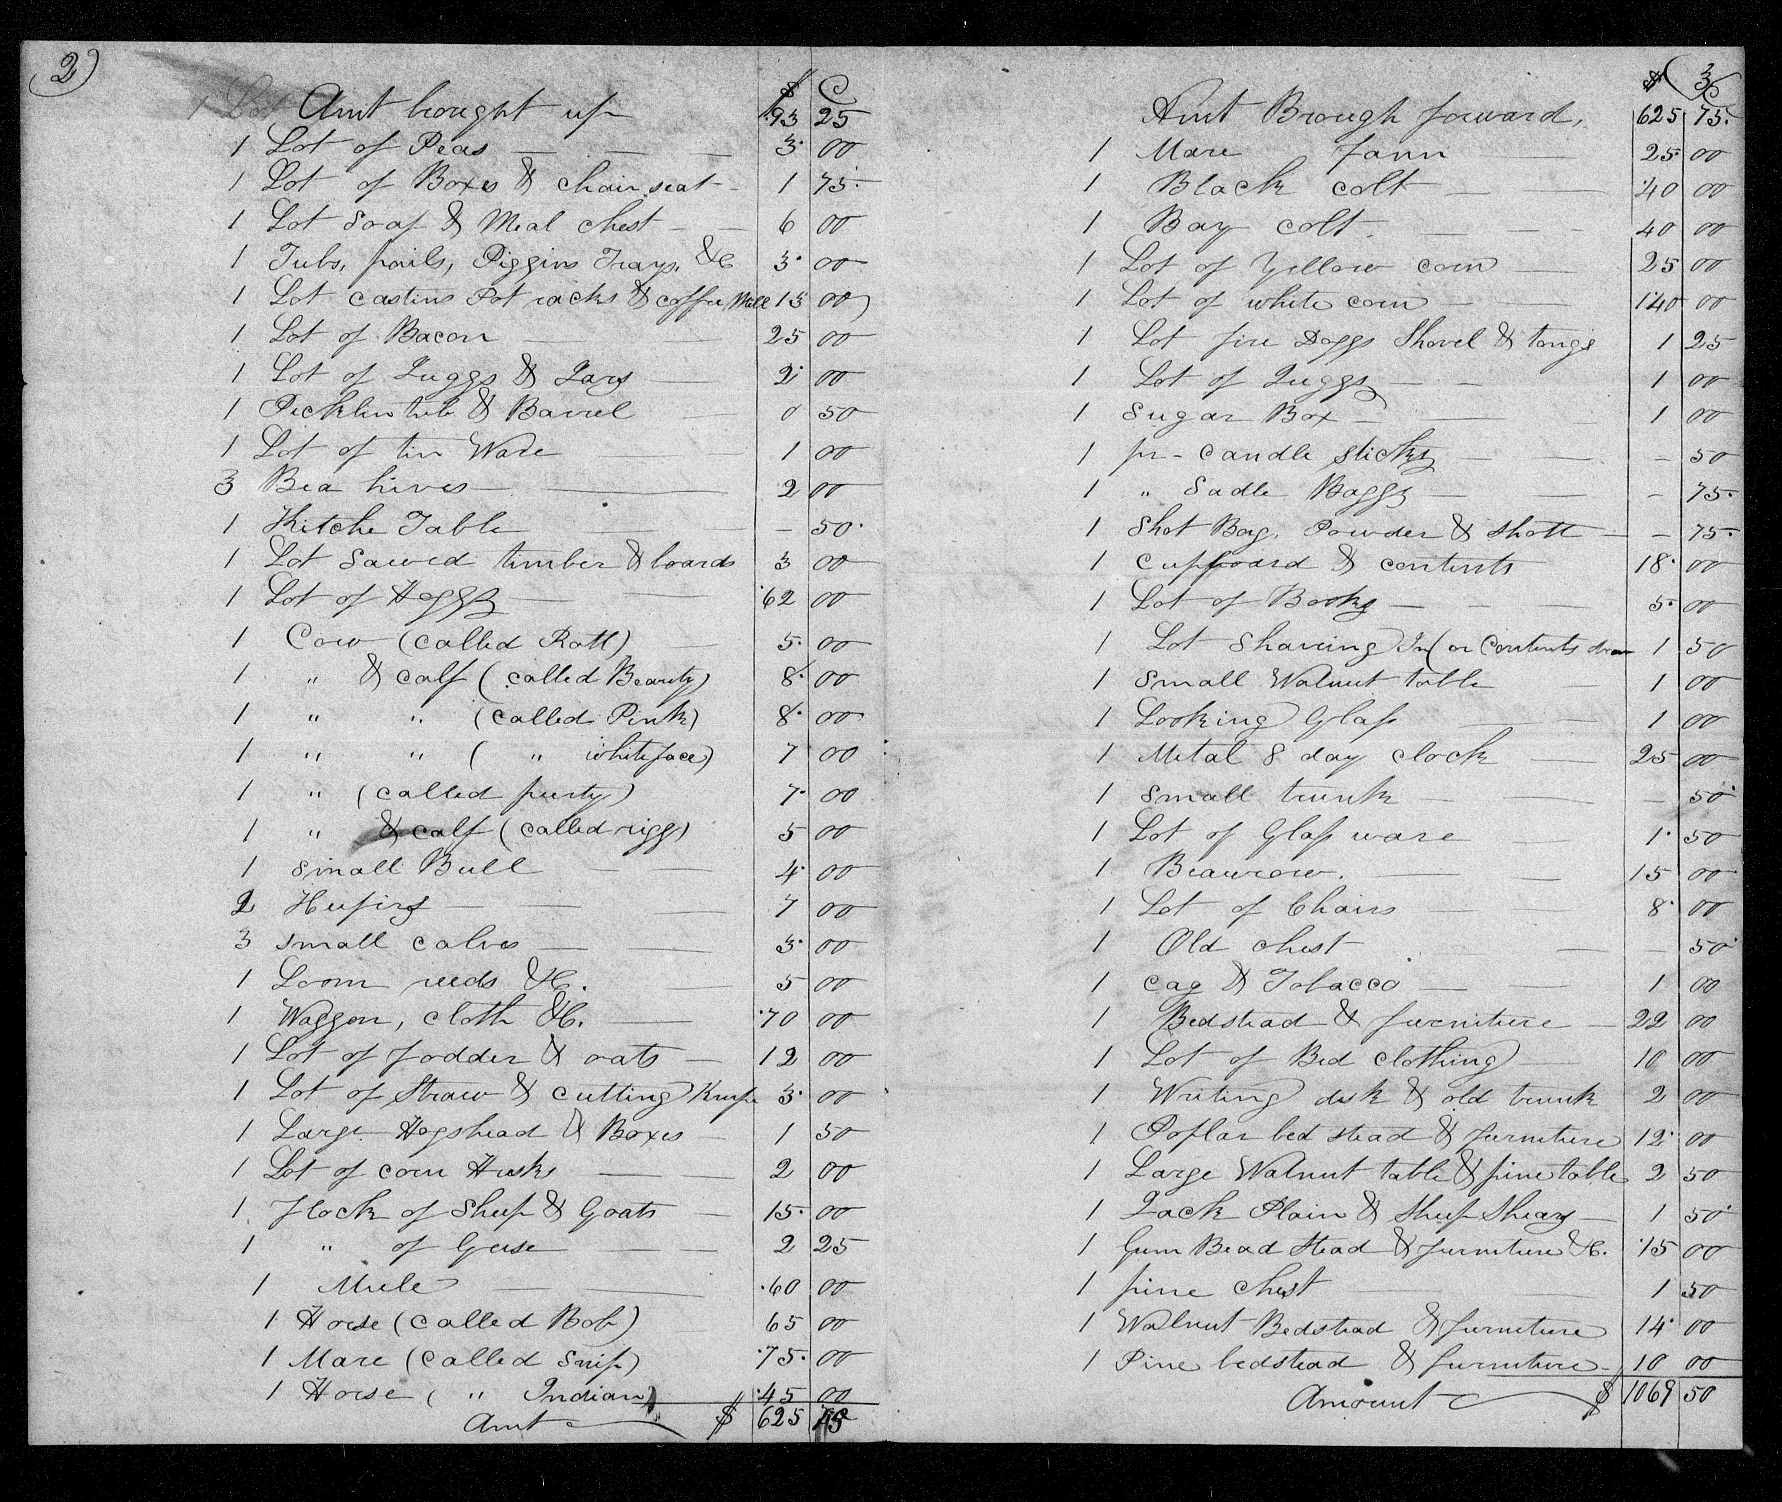 2)
$ C
Amt brought up 93 25
1 Lot of Peas — — — 3. 00
1 Lot of Boxes & chair seat - 1 75.
1 Lot Soap & Meal chest - - 6 00
1 Tubs, pails, Piggins Trays, &C 3. 00
1 Lot castins Pot racks & coffee Mill 15 00
1 Lot of Bacon — — 25 00
1 Lot of Juggs & Jars — 2. 00
1 Picklin tub & Barrel — 0 50
1 Lot of tin Ware — 1 00
3 Bea hives — — 2 00
1 Kitche Table — — - 50.
1 Lot Sawed timber & boards 3 00
1 Lot of Hoggs — — 62 00
1 Cow (called Ratt) — 5. 00
1 " & calf (called Beauty) 8. 00
1 " " (called Pink) 8. 00
1 " " ( " whiteface) 7 00
1 " (called purty) 7. 00
1 " & calf (called rigg) 5 00
1 Small Bull — — 4. 00
2 Heifirs — — — 7 00
3 small calves — — 3. 00
1 Loom reeds &C. — 5 00
1 Waggon, cloth &C. — 70 00
1 Lot of fodder & oats — 12 00
1 Lot of Straw & cutting Knife 3. 00
1 Large Hogshead & Boxes - 1 50
1 Lot of corn Husks — — 2 00
1 Flock of Sheep & Goats — 15. 00
1 " of Geese — — 2 25
1 Mule — — 60 00
1 Horse (called Bob) 65 00
1 Mare (called Snip) 75. 00
1 Horse ( " Indian) 45 00
Amt — $ 625 75
3
$ C
Amt Brough forward, 625 75.
1 Mare fann — 25. 00
1 Black colt — — 40 00
1 Bay colt. — — - 40 00
1 Lot of Yellow corn — 25 00
1 Lot of white corn — — 140 00
1 Lot fire Doggs Shovel & tongs 1 25
1 Lot of Juggs — - 1 00
1 Sugar Box — — 1 00
1 pr - candle sticks — — - 50
1 " Sadle Baggs — — - 75.
1 Shot Bag, Powder & Shott — - 75.
1 Cupboard & contents 18. 00
1 Lot of Books — — — 5. 00
1 Lot Shaveing In( or Contents draw 1 50
1 Small Walnut table — 1 00
1 Looking Glass — — 1 00
1 Metal 8 day clock — 25 00
1 Small trunk — — - 50
1 Lot of Glass ware — 1. 50
1 Beaurow. — — 15 00
1 Lot of Chairs — — 8. 00
1 Old chest — — - 50
1 Cag & Tobacco — — 1 00
1 Bedstead & furniture — 22 00
1 Lot of Bed clothing — 10 00
1 Writing desk & old trunk 2 00
1 Poplar bed stead & furniture 12. 00
1 Large Walnut table & pine table 2 50
1 Jack Plain & Sheep Shears — 1 50
1 Gum Bead Stead & furniture &C. 15 00
1 pine chest — — 1 50
1 Walnut Bedstead & furniture 14. 00
1 Pine bedstead & furniture - 10 00
Amount — $ 1069 50